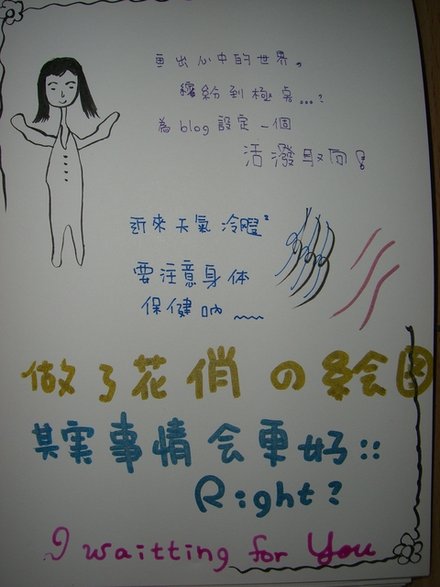 畫出心中的世界。
繽紛到極點...?
為blog設定一個
活潑取向!
近來天氣冷颼颼
要注意身体
保健吶~~~
做了花俏の絵図
其实事情会更好::
Right?
I waitting for You